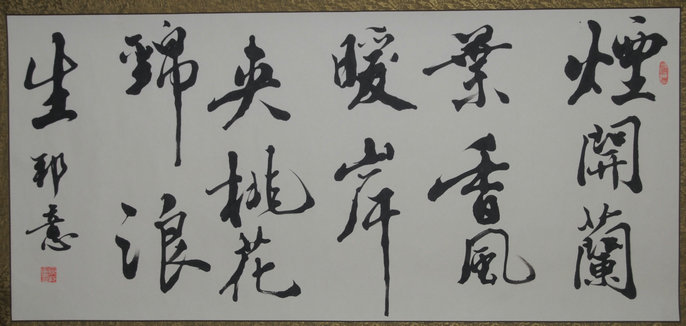 煙開蘭
葉香風
暖岸
夾桃花
錦浪
生
邦意